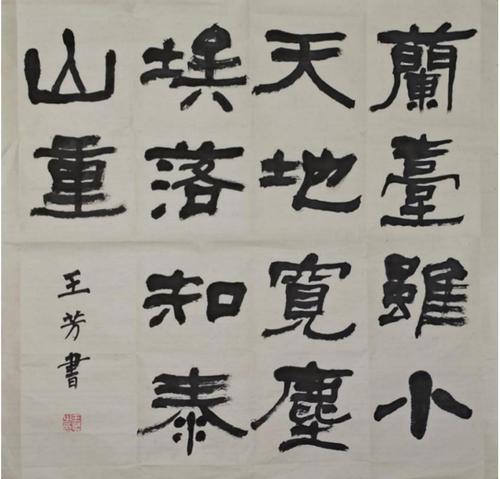 蘭臺雖小
天地寬塵
埃落知泰
山重
王芳書